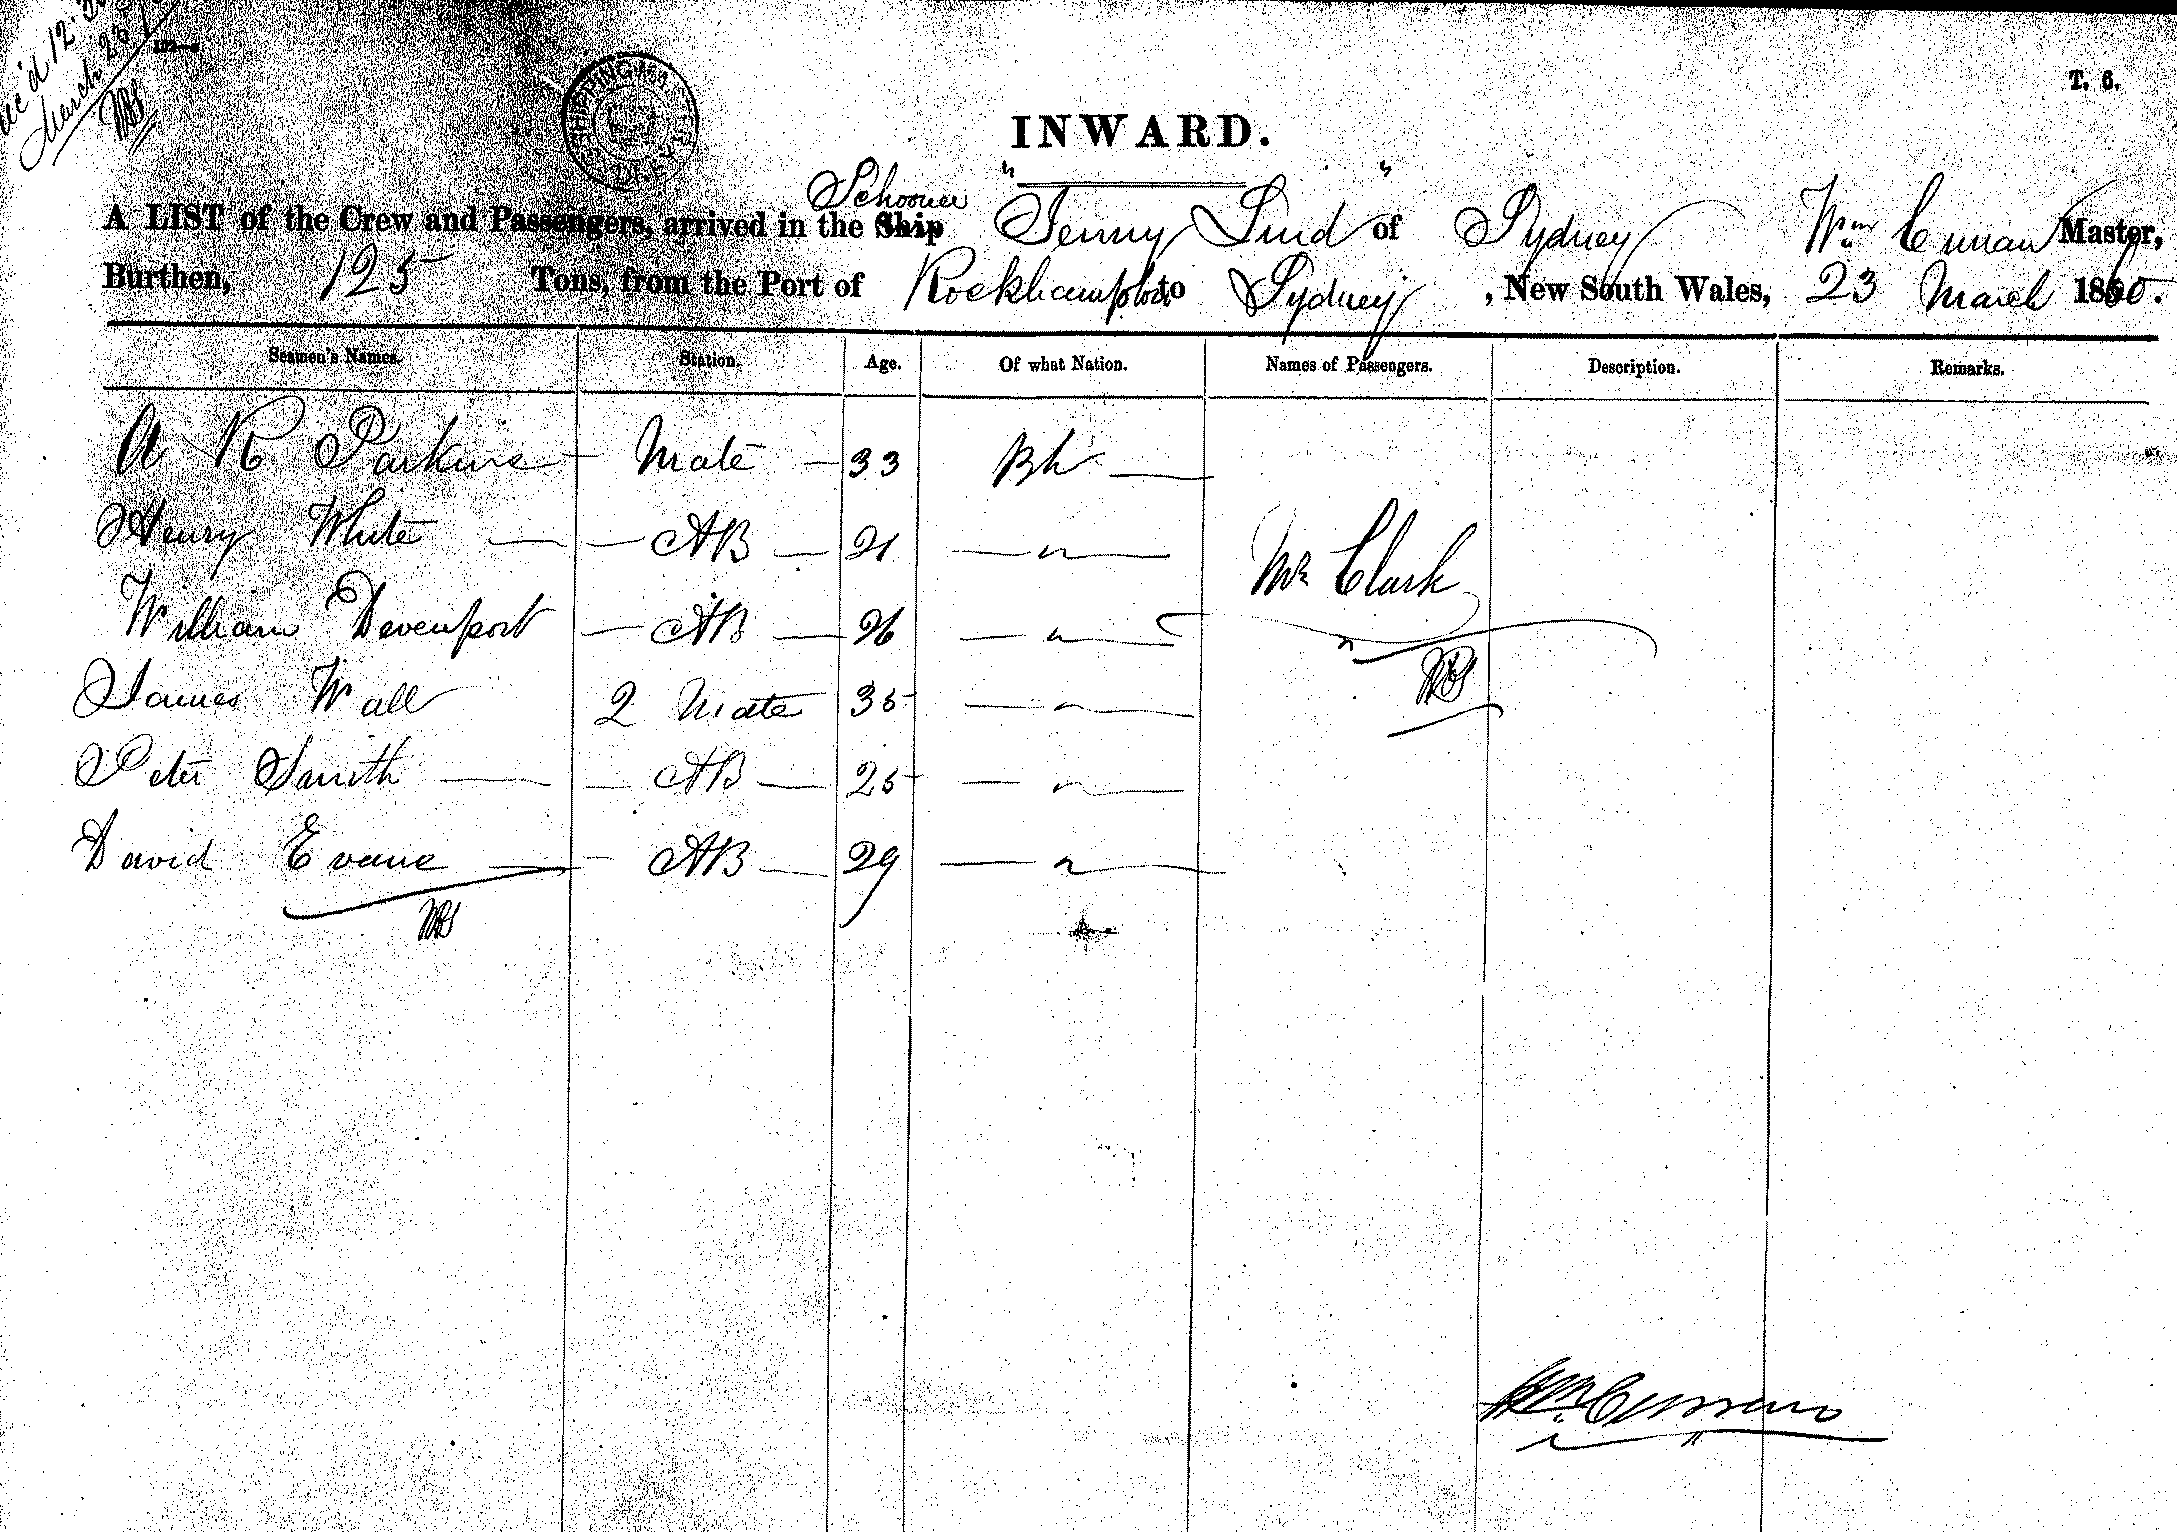 T. 6.
INWARD.
Schooner " "
A LIST of the Crew and Passengers, arrived in the Ship Jenny Lind of Sydney Wm. Curran Master,
Burthen, 125 Tons, from the Port of Rockhampton to Sydney, New South Wales, 23 March 1860.
Seamen's Names. Station. Age. Of what Nation. Names of Passengers. Description. Remarks.
A R Parkins Mate 33 Bh
Henry White AB 21 "
Mr Clark
William Davenport AB 26 "
James Wall 2 Mate 35 "
Peter Smith AB 25 "
David Evans AB 29 "
Wm. Curran